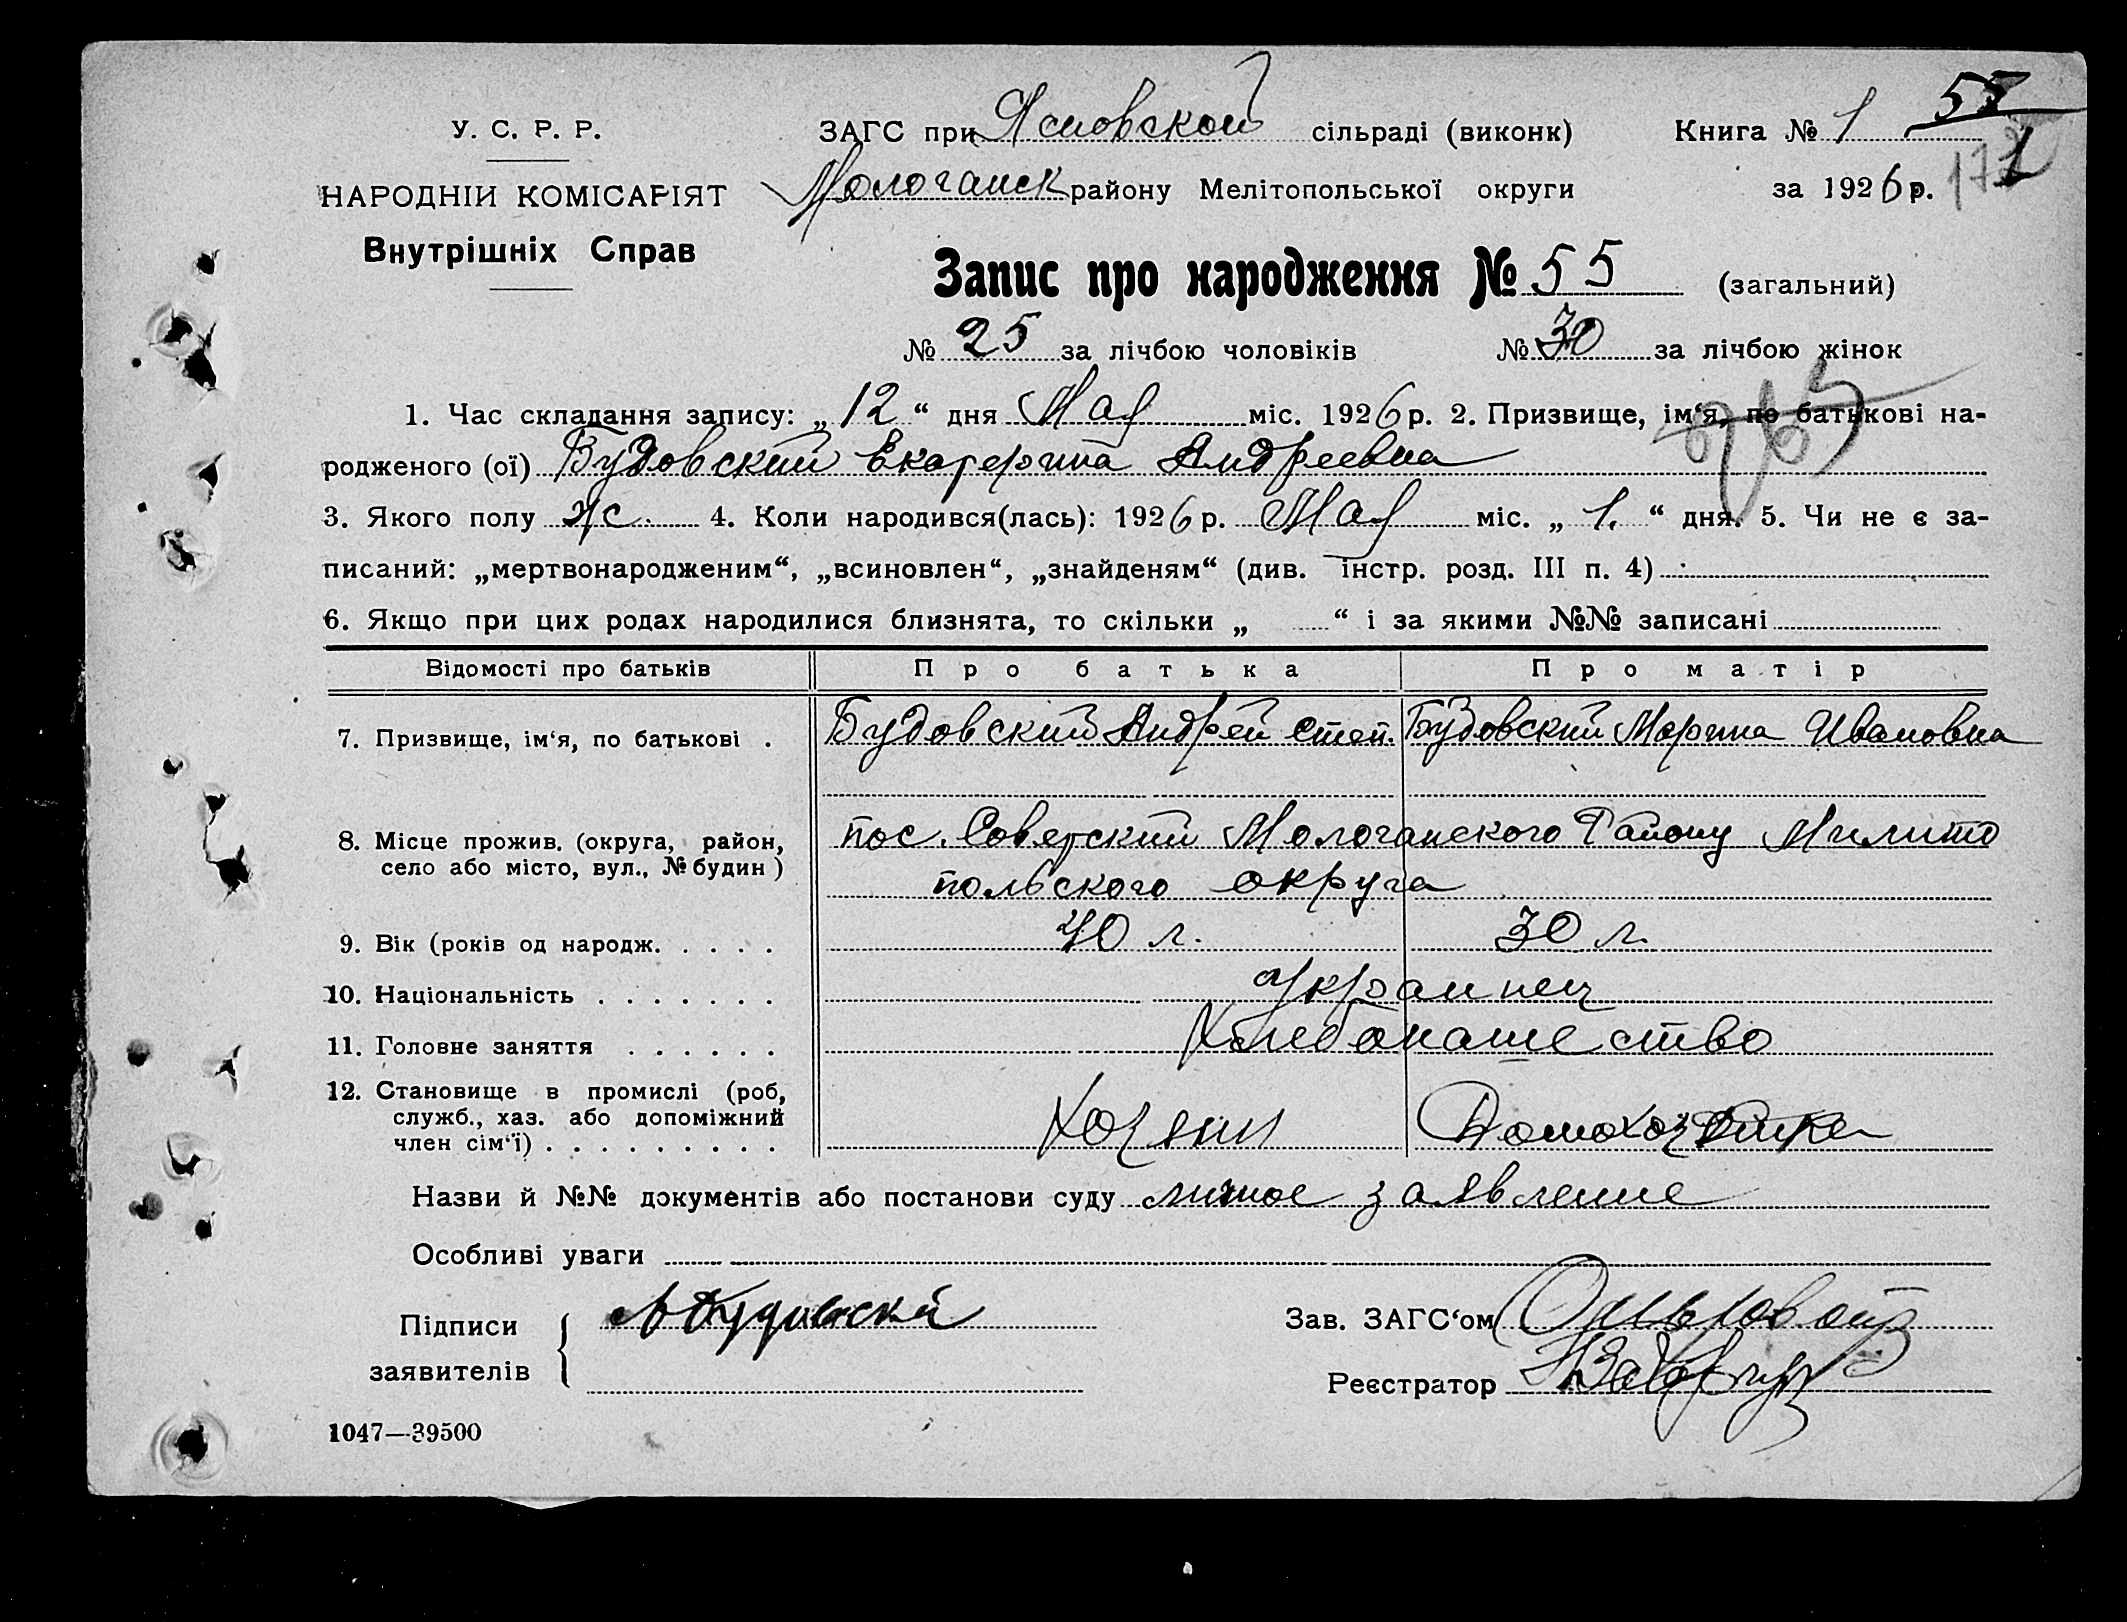 У. С. Р. Р.
НАРОДНІЙ КОМІСАРІЯТ
Внутрішніх Справ
ЗАГС при Ясновской сільраді (виконк)
Книга № 1
55
Молочанск району Мелітопольської округи
за 1926 р.
Запис про народження № 55 (загальний)
№ 25 за лічбою чоловіків № 30 за лічбою жінок
1. Час складання запису: „12“ дня Мая міс. 1926 р. 2. Призвище, ім‘я, по батькові на-
родженого (ої) Будовский Екатерина Андреевна
3. Якого полу ж. 4. Коли народився(лась): 1926 р. Мая міс. „1.“ дня. 5. Чи не є за-
писаний: „мертвонародженим“, „всиновлен“, „знайденям“ (див. інстр. розд. III п. 4)
6. Якщо при цих родах народилися близнята, то скільки „ “ і за якими №№ записані
Відомості про батьків Про батька Про матір
7. Призвище, ім‘я, по батькові . Будовский Андрей Степ. Будовский Марина Ивановна
8. Місце прожив. (округа, район,
село або місто, вул., № будин)
пос. Советский Молочанского Району Милито
польского округа
9. Вік (років од народж. . . . . 40 л. 30 л.
10. Національність . . . . . . . Украинец
11. Головне заняття . . . . . . Хлебопашество
12. Становище в промислі (роб,
служб., хаз. або допоміжний
член сім‘ї) . . . . . . . . . Хозяин Домохозяйка
Назви й №№ документів або постанови суду личное заявление
Особливі уваги
Підписи
заявителів
Зав. ЗАГС‘ом
Реєстратор
1047—39500